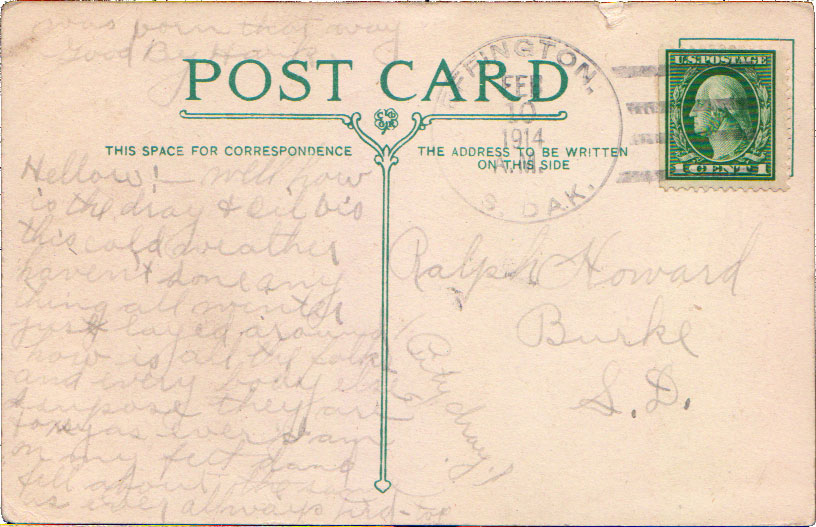 was born that way
Good By Hank
POST CARD
THIS SPACE FOR CORRESPONDENCE
THE ADDRESS TO BE WRITTEN
ON THIS SIDE
FEB
10
1914
A.M.
S. DAK.
U.S. POSTAGE
1 CENT 1
Hellow! - Well how
is the dray & oil bis
this cold weather
havent done any
thing all winter
just layed around
how is all by folks
and every body else
I supose they are
as ever I am
on my feet and
fell about the same
as ever allways
Ralph Howard
Burke
S.D.
City dray!